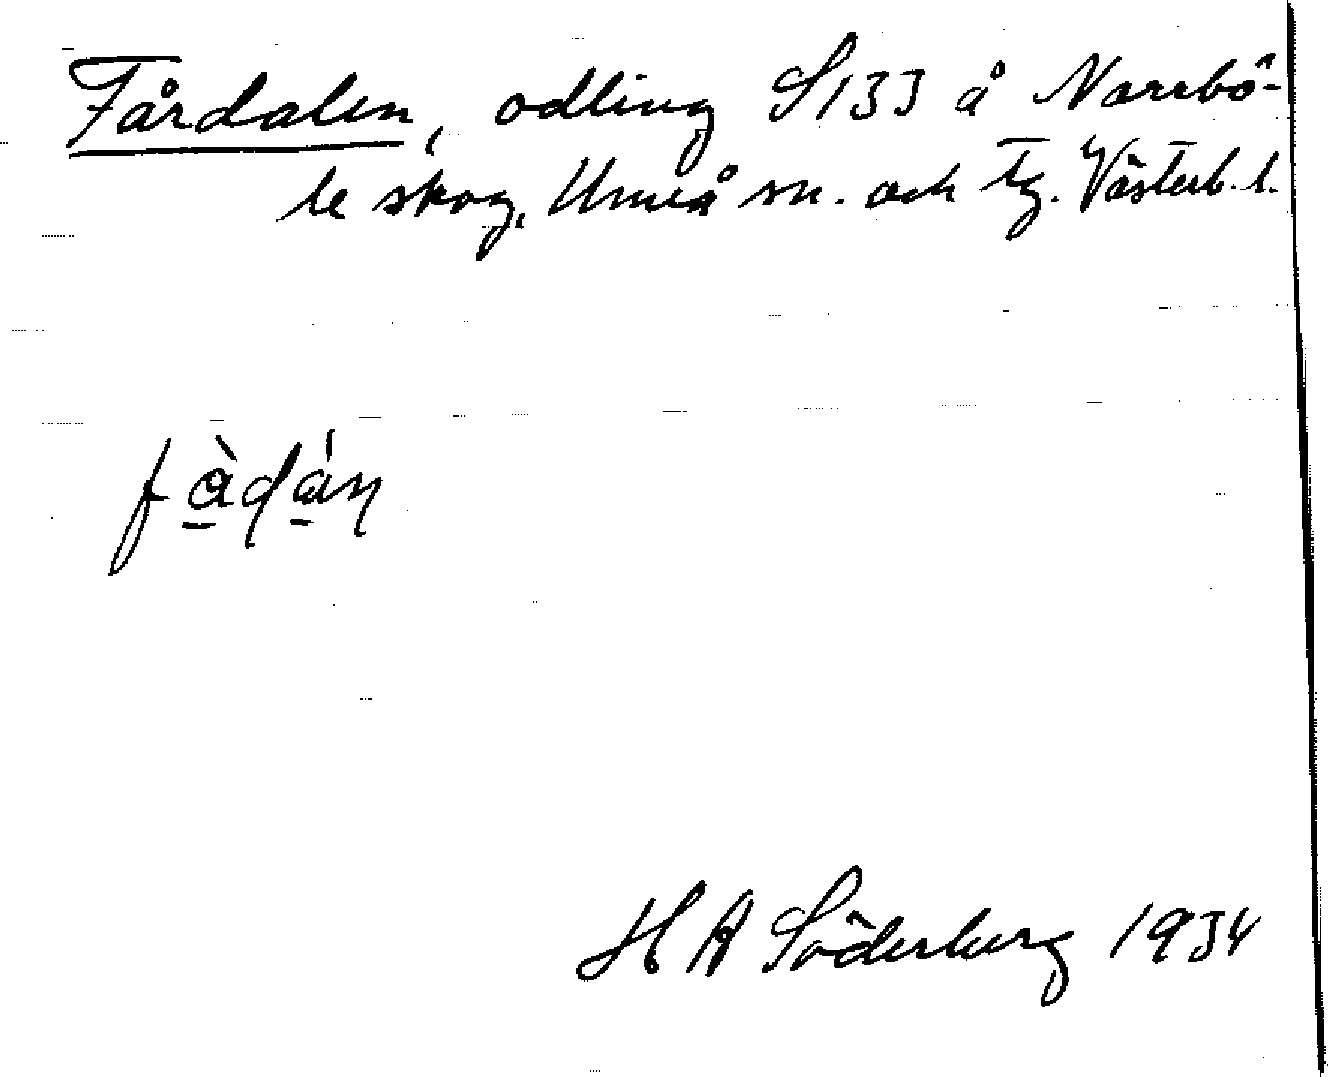 Fårdalen, odling S133 å Norrbö-
le skog, Umeå sn. och tg. Västerb. l.
fàdán
H A Söderberg 1934